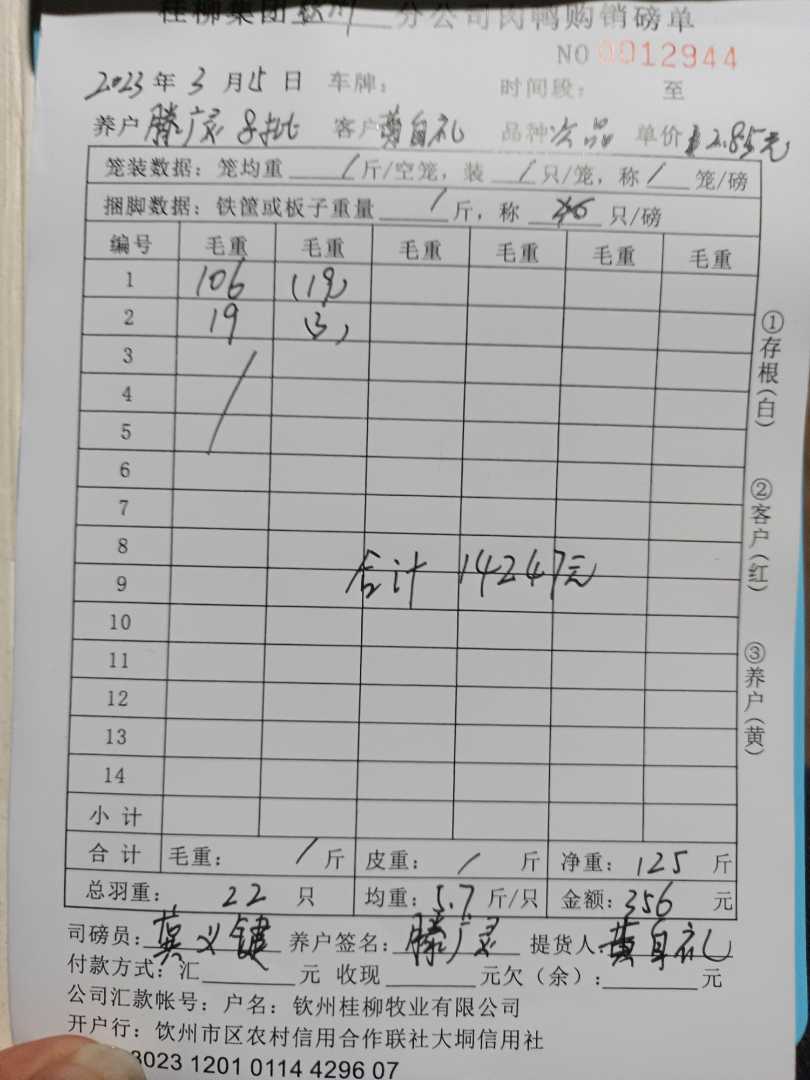 桂柳集团钦州分公司肉鸭购销磅单
NO 0012944
2023年3月15日 车牌: 时间段: 至
养户 滕广灵8批 客户 黄自礼 品种 次品 单价 2.85元
笼装数据: 笼均重 / 斤/空笼, 装 / 只/笼, 称 / 笼/磅
捆脚数据: 铁筐或板子重量 / 斤, 称 只/磅
编号 毛重 毛重 毛重 毛重 毛重 毛重
1 106 (19)
2 19 (3)
3
4
5
6
7
8
合计 14247元
9
10
11
12
13
14
小计
合计 毛重: / 斤 皮重: / 斤 净重: 125 斤
总羽重: 22 只 均重: 5.7 斤/只 金额: 356 元
司磅员: 义键 养户签名: 滕广灵 提货人: 黄自礼
付款方式: 汇 元 收现 元欠(余): 元
公司汇款帐号: 户名: 钦州桂柳牧业有限公司
开户行: 饮州市区农村信用合作联社大垌信用社
3023 1201 0114 4296 07
①存根(白)
②客户(红)
③养户(黄)